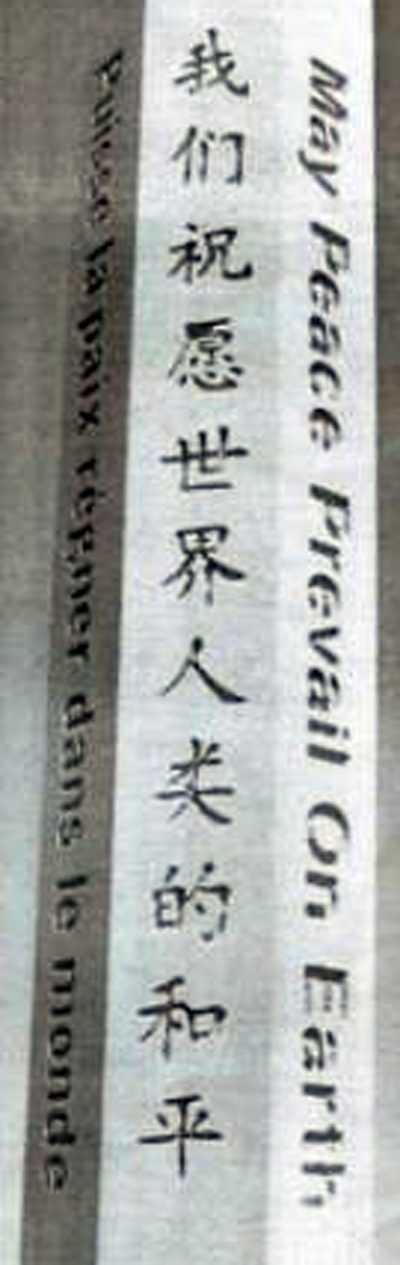 Puisse la paix régner dans le monde
我们祝愿世界人类的和平
May Peace Prevail On Earth